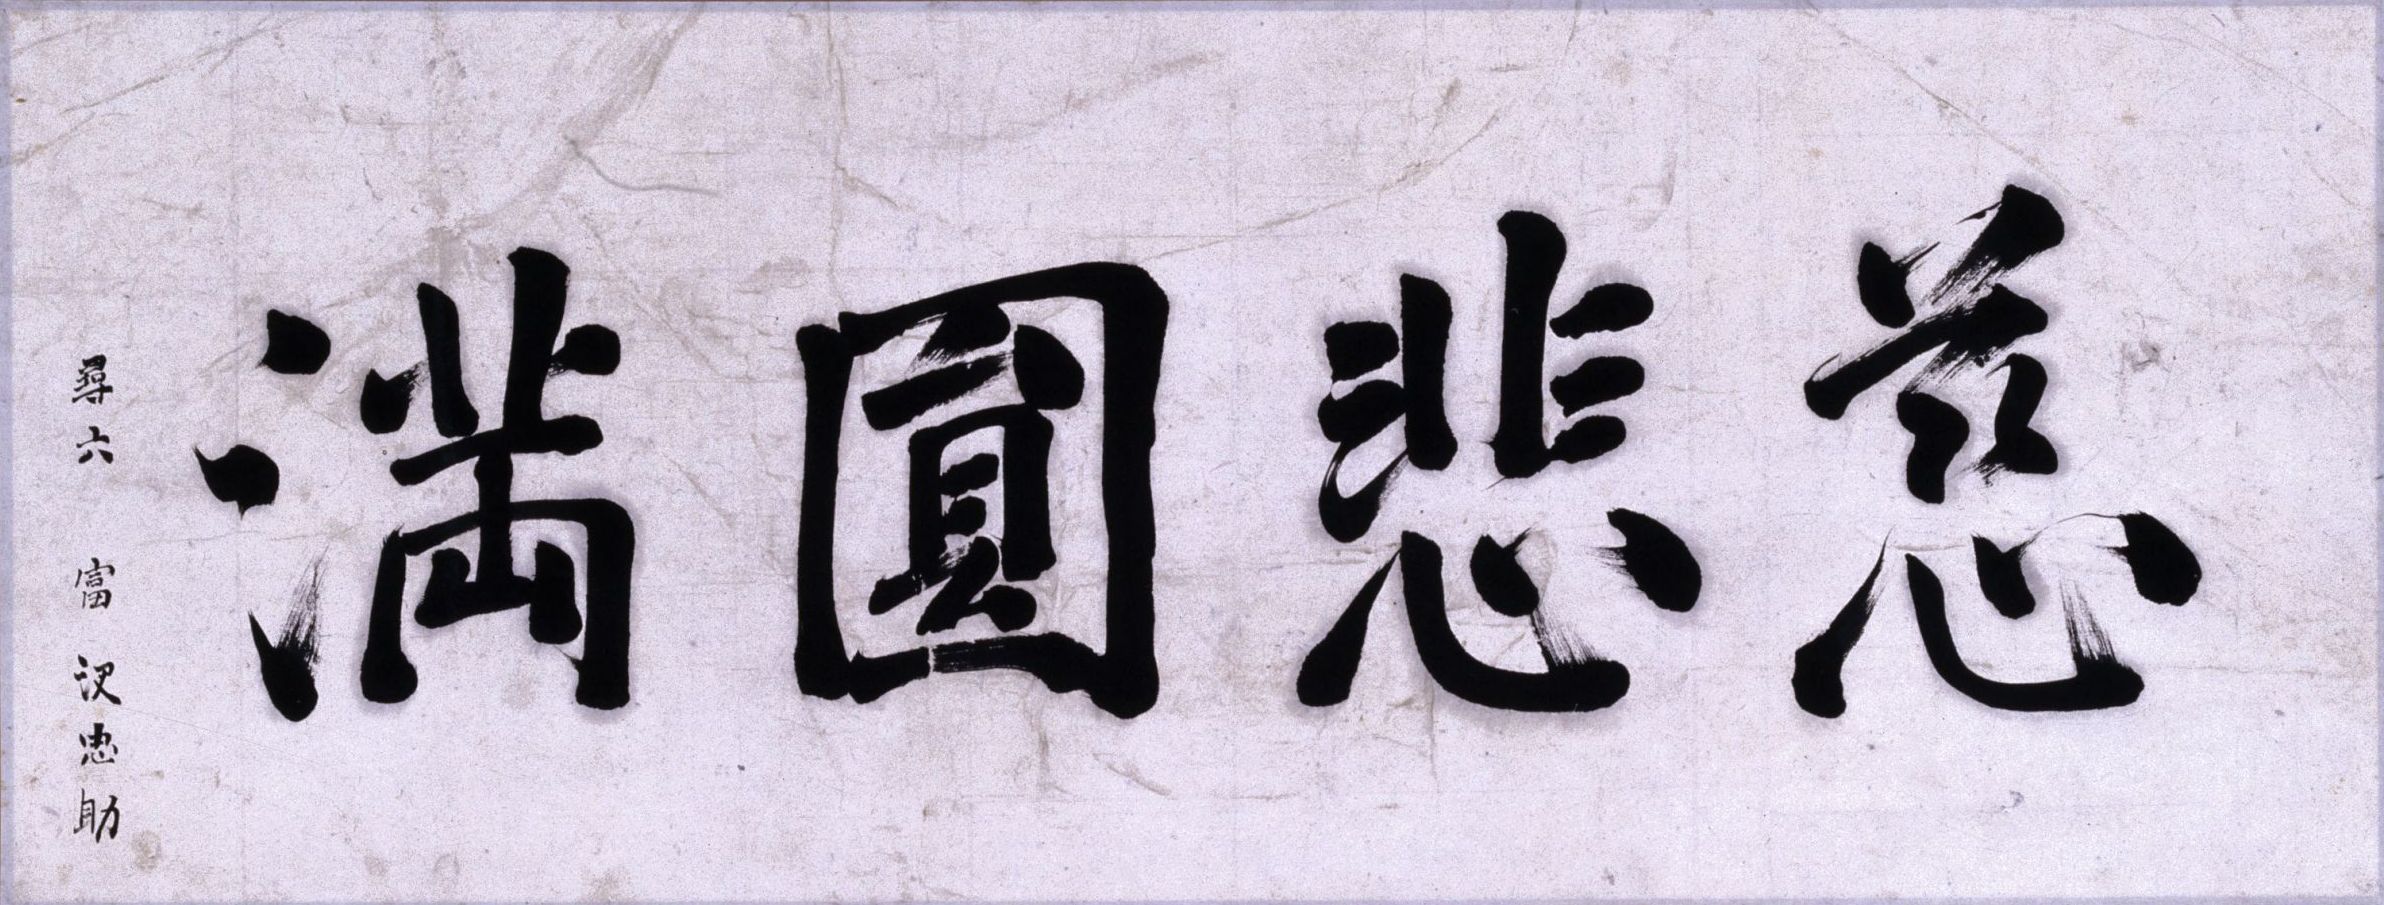 慈悲圓満
尋六 富沢忠助